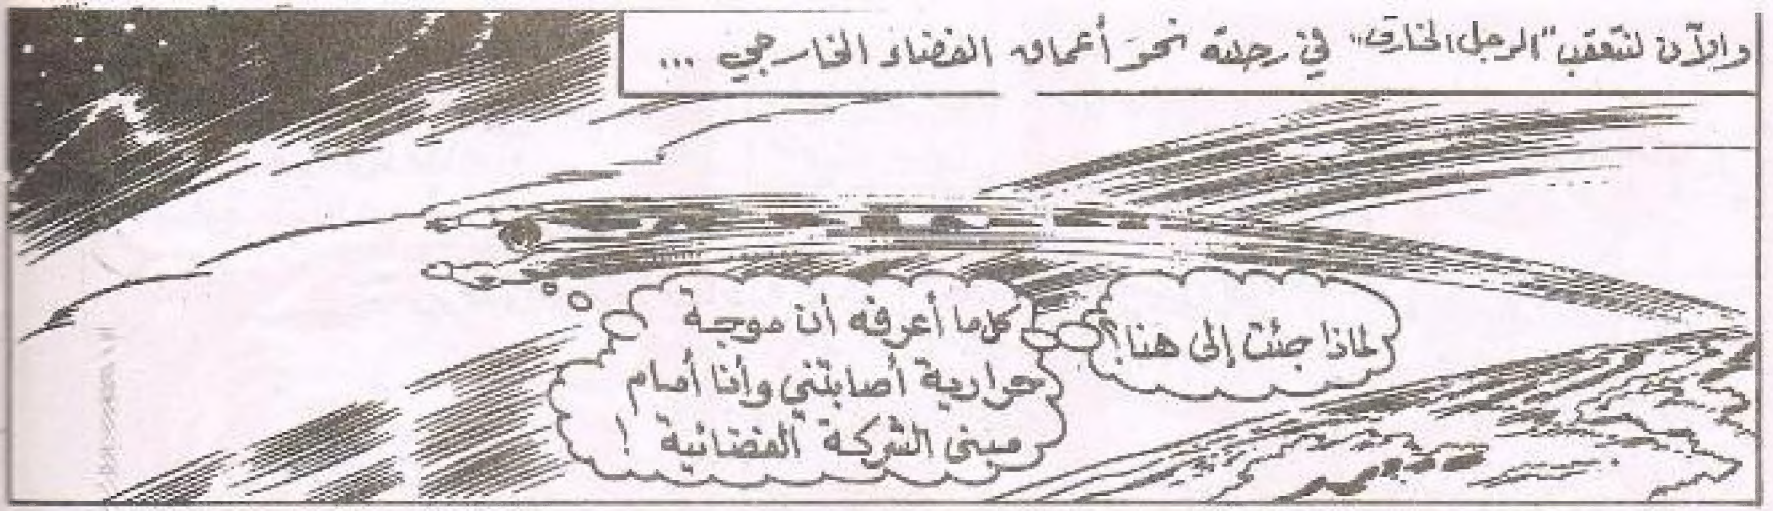 والآن لنتعقب "الرجل الخارق" في رحلته نحو أعماق الفضاء الخارجي ...
لماذا جئت إلى هنا؟
كل ما أعرفه أن موجة
حرارية أصابتني وأنا أمام
مبنى الشركة الفضائية !